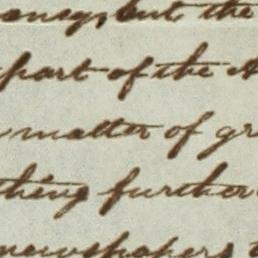 but the
part of the
matter of
thing further
newspapers